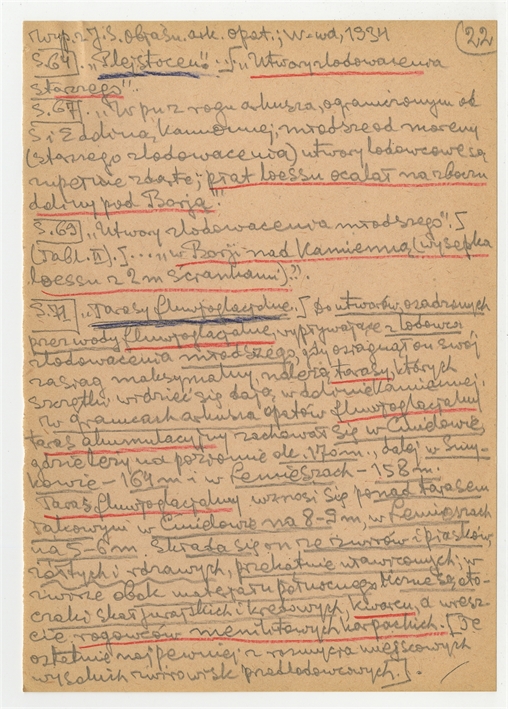 (wyp. z J. S. Objaśn. ark. Opat.; W-wa, 1934 22
S. 64. "Plejstocen". [ "Utwory zlodowacenia
starszego".
S. 67. "W pn z rogu arkusza, ograniczonym od
S i E doliną Kamiennej, młodsze od moreny
(starszego zlodowacenia) utwory lodowcowe są
zupełnie zdarte; płat loessu ocalał na zboczu
doliny pod Borją."
S. 69 "Utwory zlodowacenia młodszego". [
(Tabl. II). [...." w Borji nad Kamienną (wysepka
loessu z 2 m ściankami)."
S. 71 "Tarasy fluwjoglacjalne. [ Do utworów, osadzonych
przez wody fluwjoglacjalne, wypływające z lodowca
zlodowacenia młodszego, gdy osiągnął on swój
zasiąg maksymalny, należą tarasy, których
szczątki widzieć się dają w dolinie Kamiennej.
W granicach arkusza Opatów fluwjoglacjalny
taras akumulacyjny zachował się w Ćmielowie,
gdzie leży na poziomie ok. 170 m., dalej w
– 164 m i w Lemięszach – 158 m.
Taras fluwjoglacjalny wznosi się ponad tarasem
łąkowym w Ćmielowie na 8-9 m, w Lemięszach
na 5-6 m. Składa się on ze żwirów i piasków,
żółtych i rdzawych, przekątnie uławiconych; w
żwirze obok materjału północnego liczne są oto-
czaki skał jurajskich i kredowych, kwarcu, a wresz-
cie rogowców menilitowych karpackich. [ Te
ostatnie najpewniej z rozmycia miejscowych
wysokich żwirowisk przedlodowcowych. ].